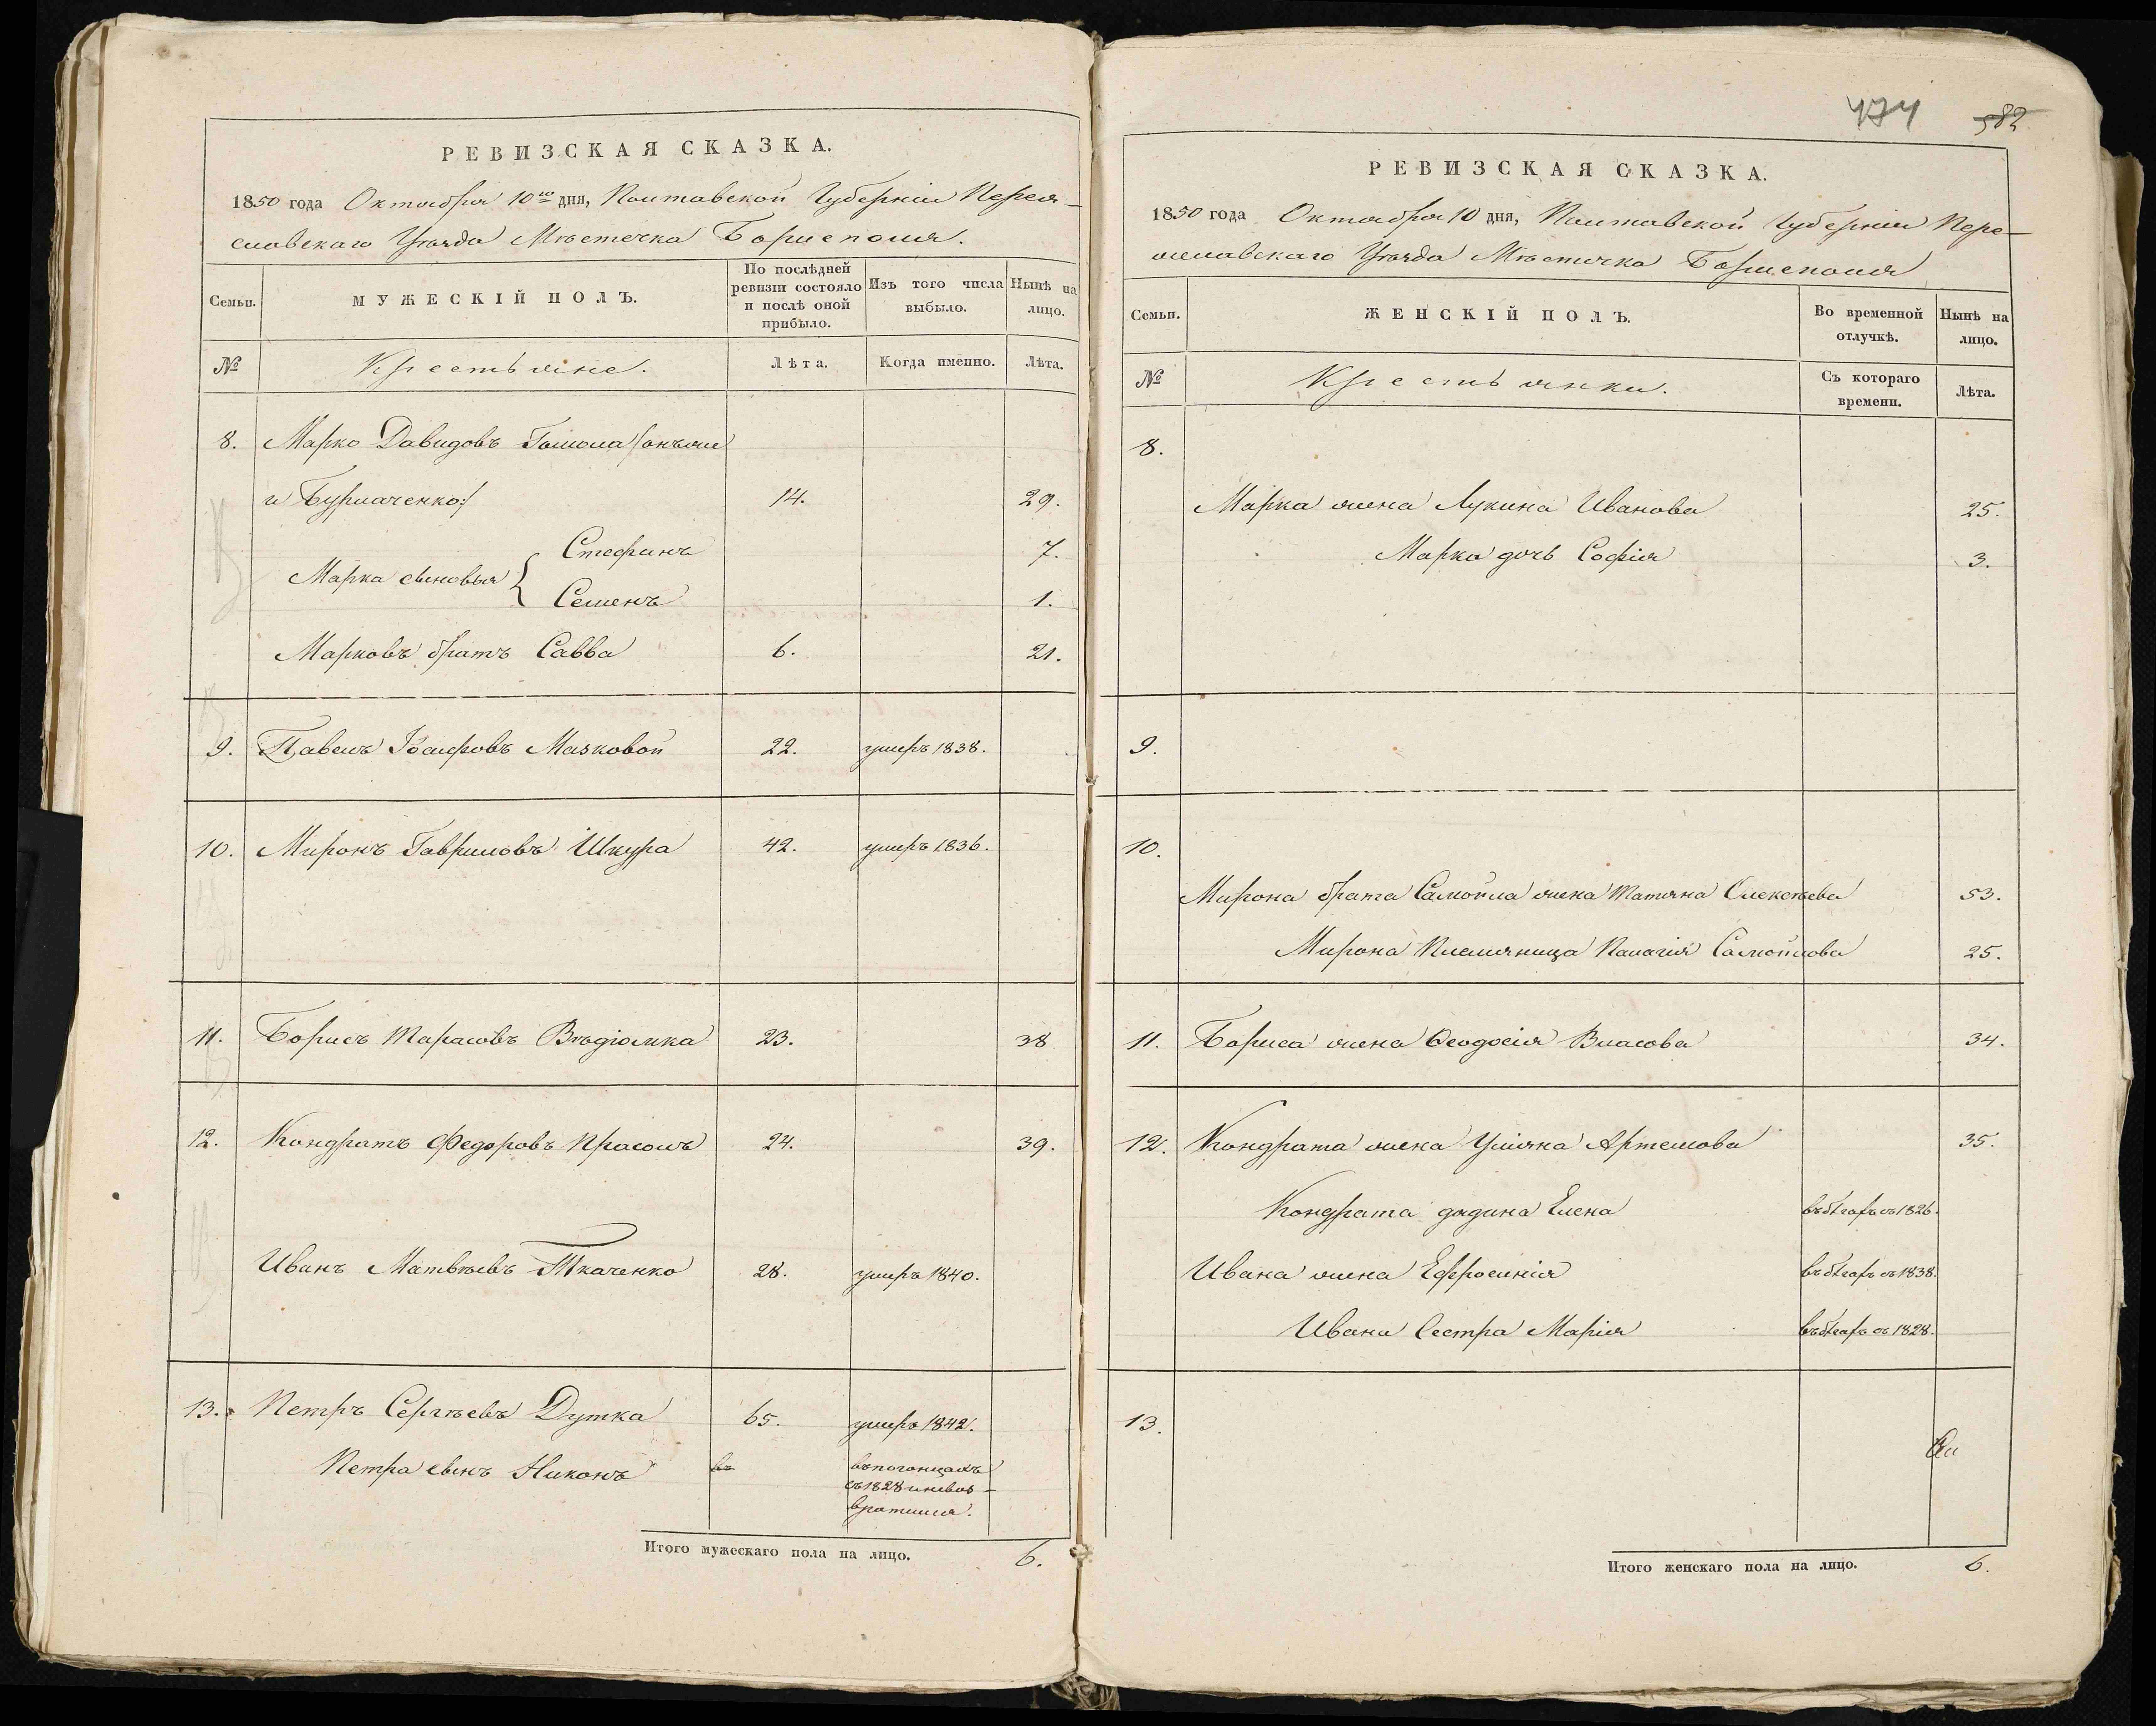 РЕВИЗСКАЯ СКАЗКА.
1850 года Октября 10го дня, Полтавской Губерніи Перея-
славскаго Уѣзда Мѣстечка Борисполя.
Семьи.
МУЖЕСКІЙ ПОЛЪ.
По послѣдней
ревизіи состояло
и послѣ оной
прибыло.
Изъ того числа
выбыло.
Нынѣ на
лицо.
№
Крестьяне.
Лѣта.
Когда именно.
Лѣта.
8. Марко Давидовъ Гомола /:онъже
и Бурмаченко:/ 14. 29.
Марка сыновья { Стефанъ 7.
Семенъ 1.
Марковъ братъ Савва 6. 21.
9. Павелъ Мазковой 22. умеръ 1838.
10. Миронъ Гавриловъ Шкура 42. умеръ 1836.
11. Борисъ Тарасовъ Вѣдіомка 23. 38
12. Кондратъ Федоровъ Прасолъ 24. 39.
Иванъ Матвѣевъ Ткаченко 28. умеръ 1840.
13. Петръ Сергѣевъ Дутка 65. умеръ 1842.
Петра сынъ Никонъ въ въпогонцахъ
съ 1828 иневоз-
вратился.
Итого мужескаго пола на лицо. 6.
474 582
РЕВИЗСКАЯ СКАЗКА.
1850 года Октября 10 дня, Полтавской Губерніи Пере-
яславскаго Уѣзда Мѣстечка Борисполя
Семьи.
ЖЕНСКІЙ ПОЛЪ.
Во временной
отлучкѣ.
Нынѣ на
лицо.
№
Крестьянки.
Съ котораго
времени.
Лѣта.
8.
Марка жена Лукина Иванова 25.
Марка дочь Софія 3.
9.
10.
Мирона брата Самойла жена Татяна Олексѣева 53.
Мирона Племяница Палагія Самойлова 25.
11. Бориса жена Ѳеодосія Власова 34.
12. Кондрата жена Уліяна Артемова 35.
Кондрата дядина Елена въбѣгахъ съ 1826.
Ивана жена Ефросинія въбѣгахъ съ 1838.
Ивана Сестра Марія въбѣгахъ съ 1828.
13.
Итого женскаго пола на лицо. 6.